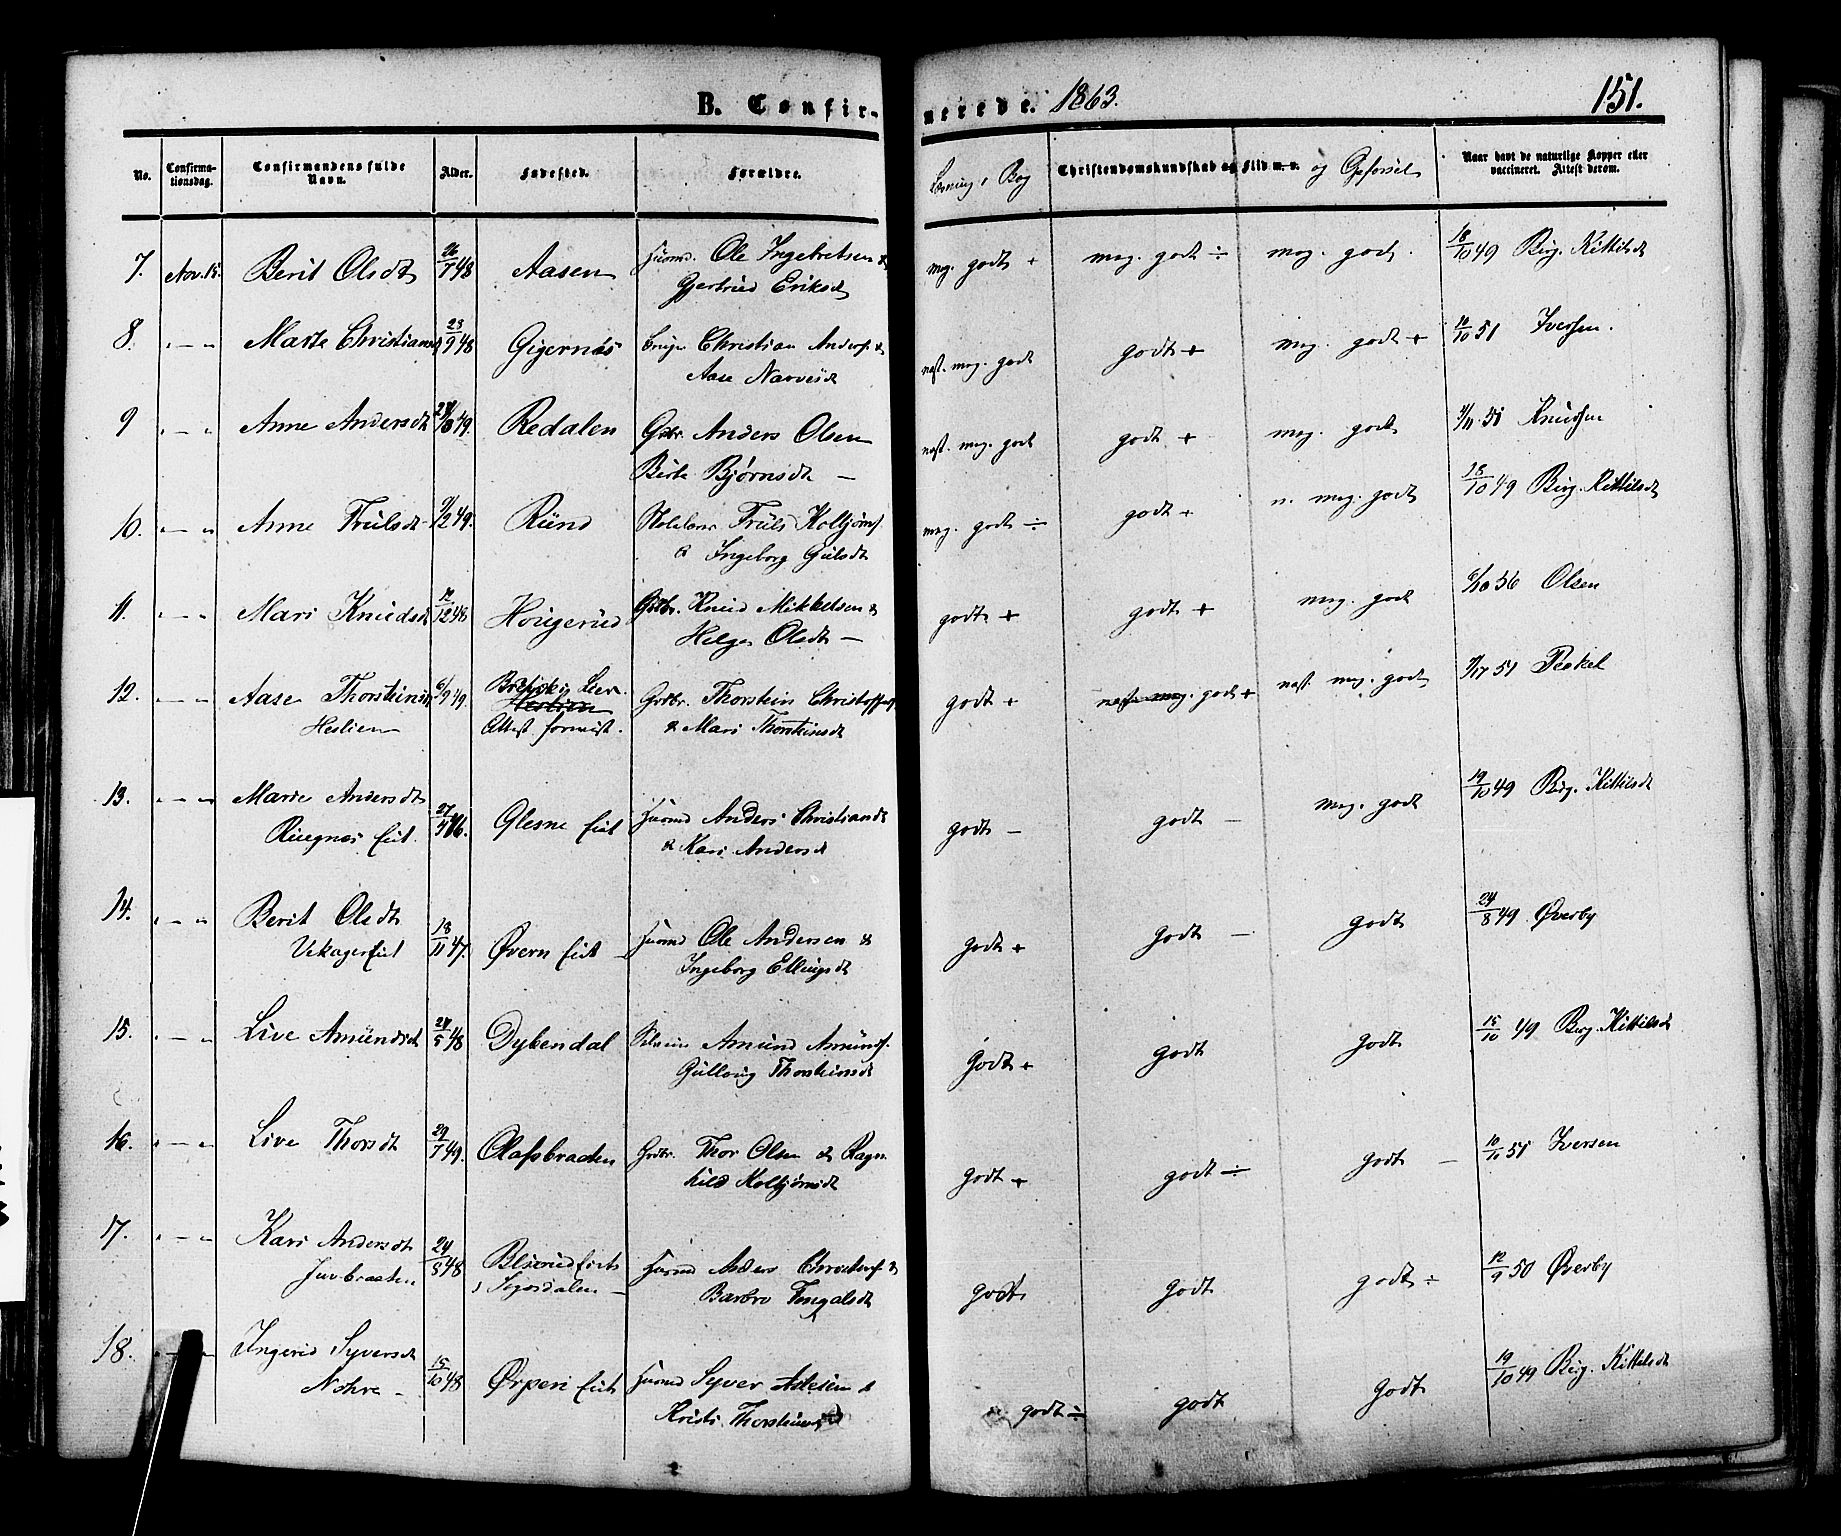 B. Confirmerede. 1863. 151.
No. Confirmationsdag. Confirmandens fulde Navn. Alder. Fødested. Forældre. Læsning i Bog Christendomskundskab og Flid m. v. og Opførsel Naar havt de naturlige Kopper eller vaccineret. Attest derom.
7. Nov. 15. Berit Olsdt 26/7 48 Aasen Huusmd. Ole Ingebretsen &
Gjertrud Eriksdt
meg. godt + meg. godt ÷ meg. godt. 18/10 49 Birg. Kittilsdt
8. " — " Marte Christiansdt 23/9 48 Gigernæs Christian Anders. &
Aase Narvesdt
næst. meg. godt godt + meg. godt + 10/10 51 Iversen.
9 " — " Anne Andersdt 49. Redalen Gdbr. Anders Olsen
Birte Bjørnsdt —
næst. meg. godt godt + meg. godt 51 Knudsen
10. " — " Anne Trulsdt 49. Rund Truls Kolbjørns.
& Ingeborg Gulsdt
meg. godt ÷ godt + n. meg. godt 18/10 49 Birg. Kittilsdt
11. " — " Mari Knudsdt 12/12 48 Hougerud Gdbr. Knud Mikkelsen &
Helge Olsdt —
godt + godt + meg. godt 6/10 56 Olsen
12. " — " Aase Thorsteinsdt 6/9 49 Leer.
Heslien Heslien
Attest forevist.
Gdbr. Thorstein Christoffers.
& Mari Thorsteinsdt
godt + næst. meg. godt + næst. meg. godt 51
13. " — " Marie Andersdt 27/ 46. Glesne Eiet Huusmd Anders Christians
Ringnes Eiet. & Kari Andersdt
godt — godt — meg. godt 19/10 49 Birg. Kittilsdt
14. " — " Berit Olsdt 18/11 47. Øvern Eiet — Huusmd Ole Andersen &
Vekager Eiet Ingeborg Ellingsdt
godt + godt — godt 24/8 49 Øverby
15. " — " Live Amundsdt 24/5 48 Dybendal Amund Amunds.
Gulloug Thorsteinsdt
Godt + godt godt 15/10 49 Birg. Kittilsdt
16. " — " Live Thorsdt 29/7 49. Olafsbraaten Gdbr. Thor Olsen & Ragn
hild Kolbjørnsdt
godt + godt ÷ godt — 10/10 51 Iversen
17. " — " Kari Andersdt 24/8 48 Eiet Huusmd Anders Christens. &
Juvbraaten i Sigersdalen — Barbro Tengalsdt
godt godt godt ÷ 12/9 50 Øverby
18. " — " Ingerid Syversdt 15/10 48 Ørpen Eiet Huusmd Syver Astesen &
Nohre — Kristi Thorsteinsdt
godt ÷ godt Godt 19/10 49 Birg. Kittilsdt